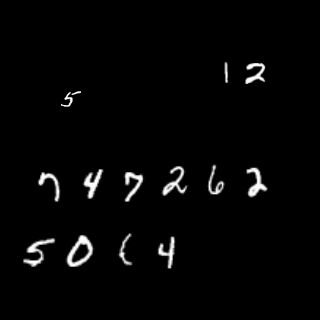 12
5
747262
5064